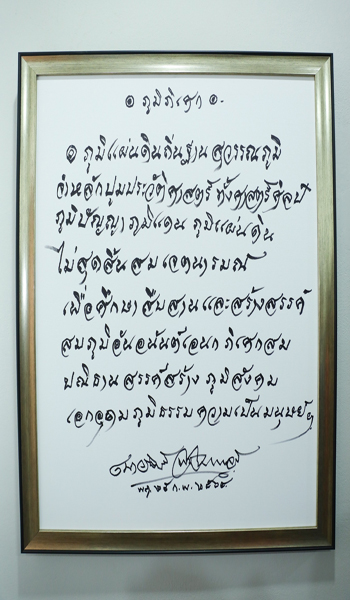 ๏ ภูมิภิเศก ๏-
๏ ภูมิแผ่นดินถิ่นฐานสุวรรณภูมิ
จำหลักปูมประวัติศาสตร์ทั้งศาสตร์ศิลป์
ภูมิปัญญา ภูมิแดน ภูมิแผ่นดิน
ไม่สุดสิ้นสมเจตนารมณ์
เพื่อศึกษา สืบสาน และสร้างสรรค์
สมภูมิอันอนันต์เอนก ภิเศกสม
ปณิธาน สรรค์สร้าง ภูมิสังคม
เอกอุดม ภูมิธรรม ความเป็นมนุษย์ฯ